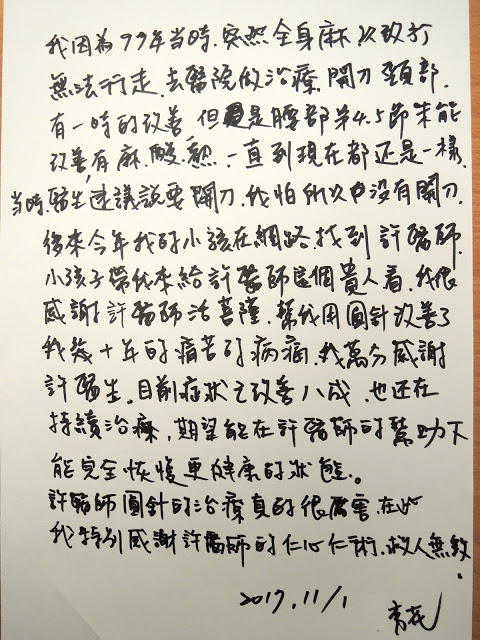 我因為99年當時.突然全身麻.以致於
無法行走.去醫院做治療.開刀頸部.
有一時的改善.但是腰部第4.5節未能
改善,有麻.酸. 一直到現在都还是一樣.
當時.醫生建議說要開刀.我怕所以中没有開刀.
後來今年我的小孩在網路找到許醫師.
小孩子帶我來給許醫師這個貴人看.我很
感謝許醫師活菩薩.幫我用圓針改善了
我幾十年的痛苦的病痛.我萬分感謝
許醫生.目前症狀已改善八成.也还在
持續治療,期望能在許醫師的幫助下
能完全恢復更健康的狀態.。
許醫師圓針的治療真的很厲害.在此
我特別感謝許醫師的仁心仁術.救人無數.
2017.11/1